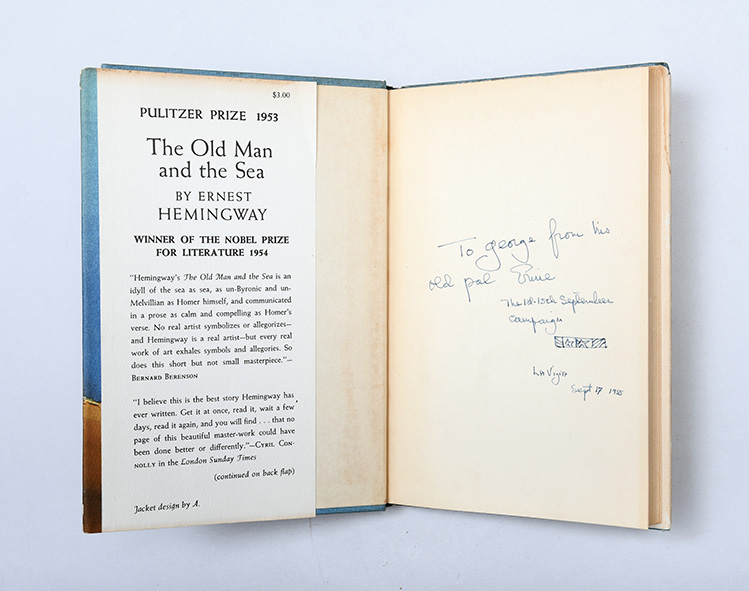 $3.00
PULITZER PRIZE 1953
The Old Man
and the Sea
BY ERNEST
HEMINGWAY
WINNER OF THE NOBEL PRIZE
FOR LITERATURE 1954
"Hemingway's The Old Man and the Sea is an
idyll of the sea as sea, as un-Byronic and un-
Melvillian as Homer himself, and communicated
in a prose as calm and compelling as Homer's
verse. No real artist symbolizes or allegorizes—
and Hemingway is a real artist—but every real
work of art exhales symbols and allegories. So
does this short but not small masterpiece."—
BERNARD BERENSON
"I believe this is the best story Hemingway has
ever written. Get it at once, read it, wait a few
days, read it again, and you will find . . . that no
page of this beautiful master-work could have
been done better or differently."—CYRIL CON-
NOLLY in the London Sunday Times
(continued on back flap)
Jacket design by A.
To george from his
old pal
The 1st-15th September
campaign
La Vigia
Sept 17